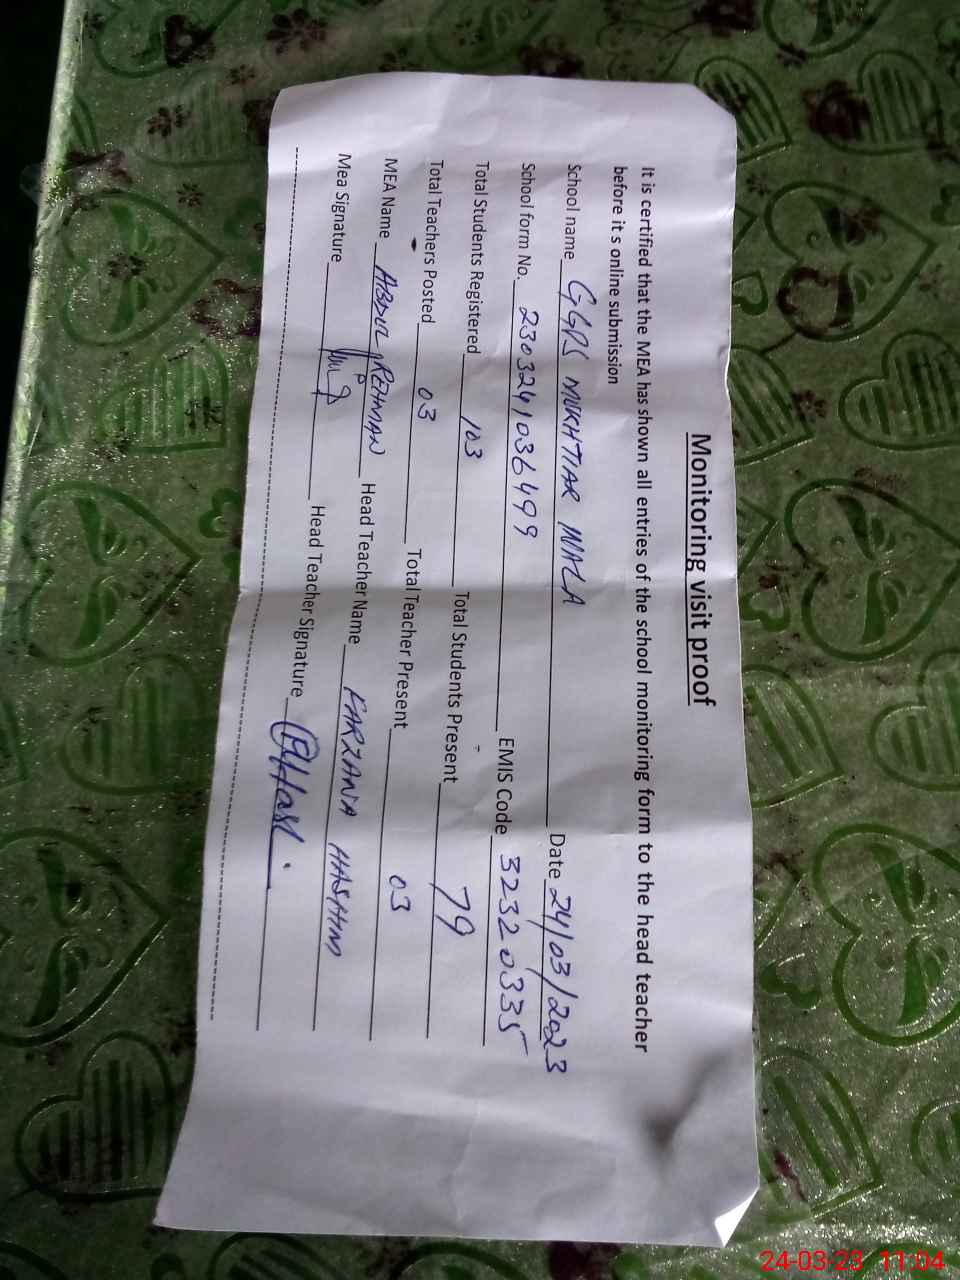 Monitoring visit proof
It is certified that the MEA has shown all entries of the school monitoring form to the head teacher
before it s online submission
School name GGPS MUKHTIAR WALA Date 24/03/2023
School form No. 2303241036499 EMIS Code 32320335
Total Students Registered 103 Total Students Present 79
Total Teachers Posted 03 Total Teacher Present 03
MEA Name ABDUL REHMAN Head Teacher Name FARZANA HASHIM
Mea Signature Head Teacher Signature
24-03-23 11:04